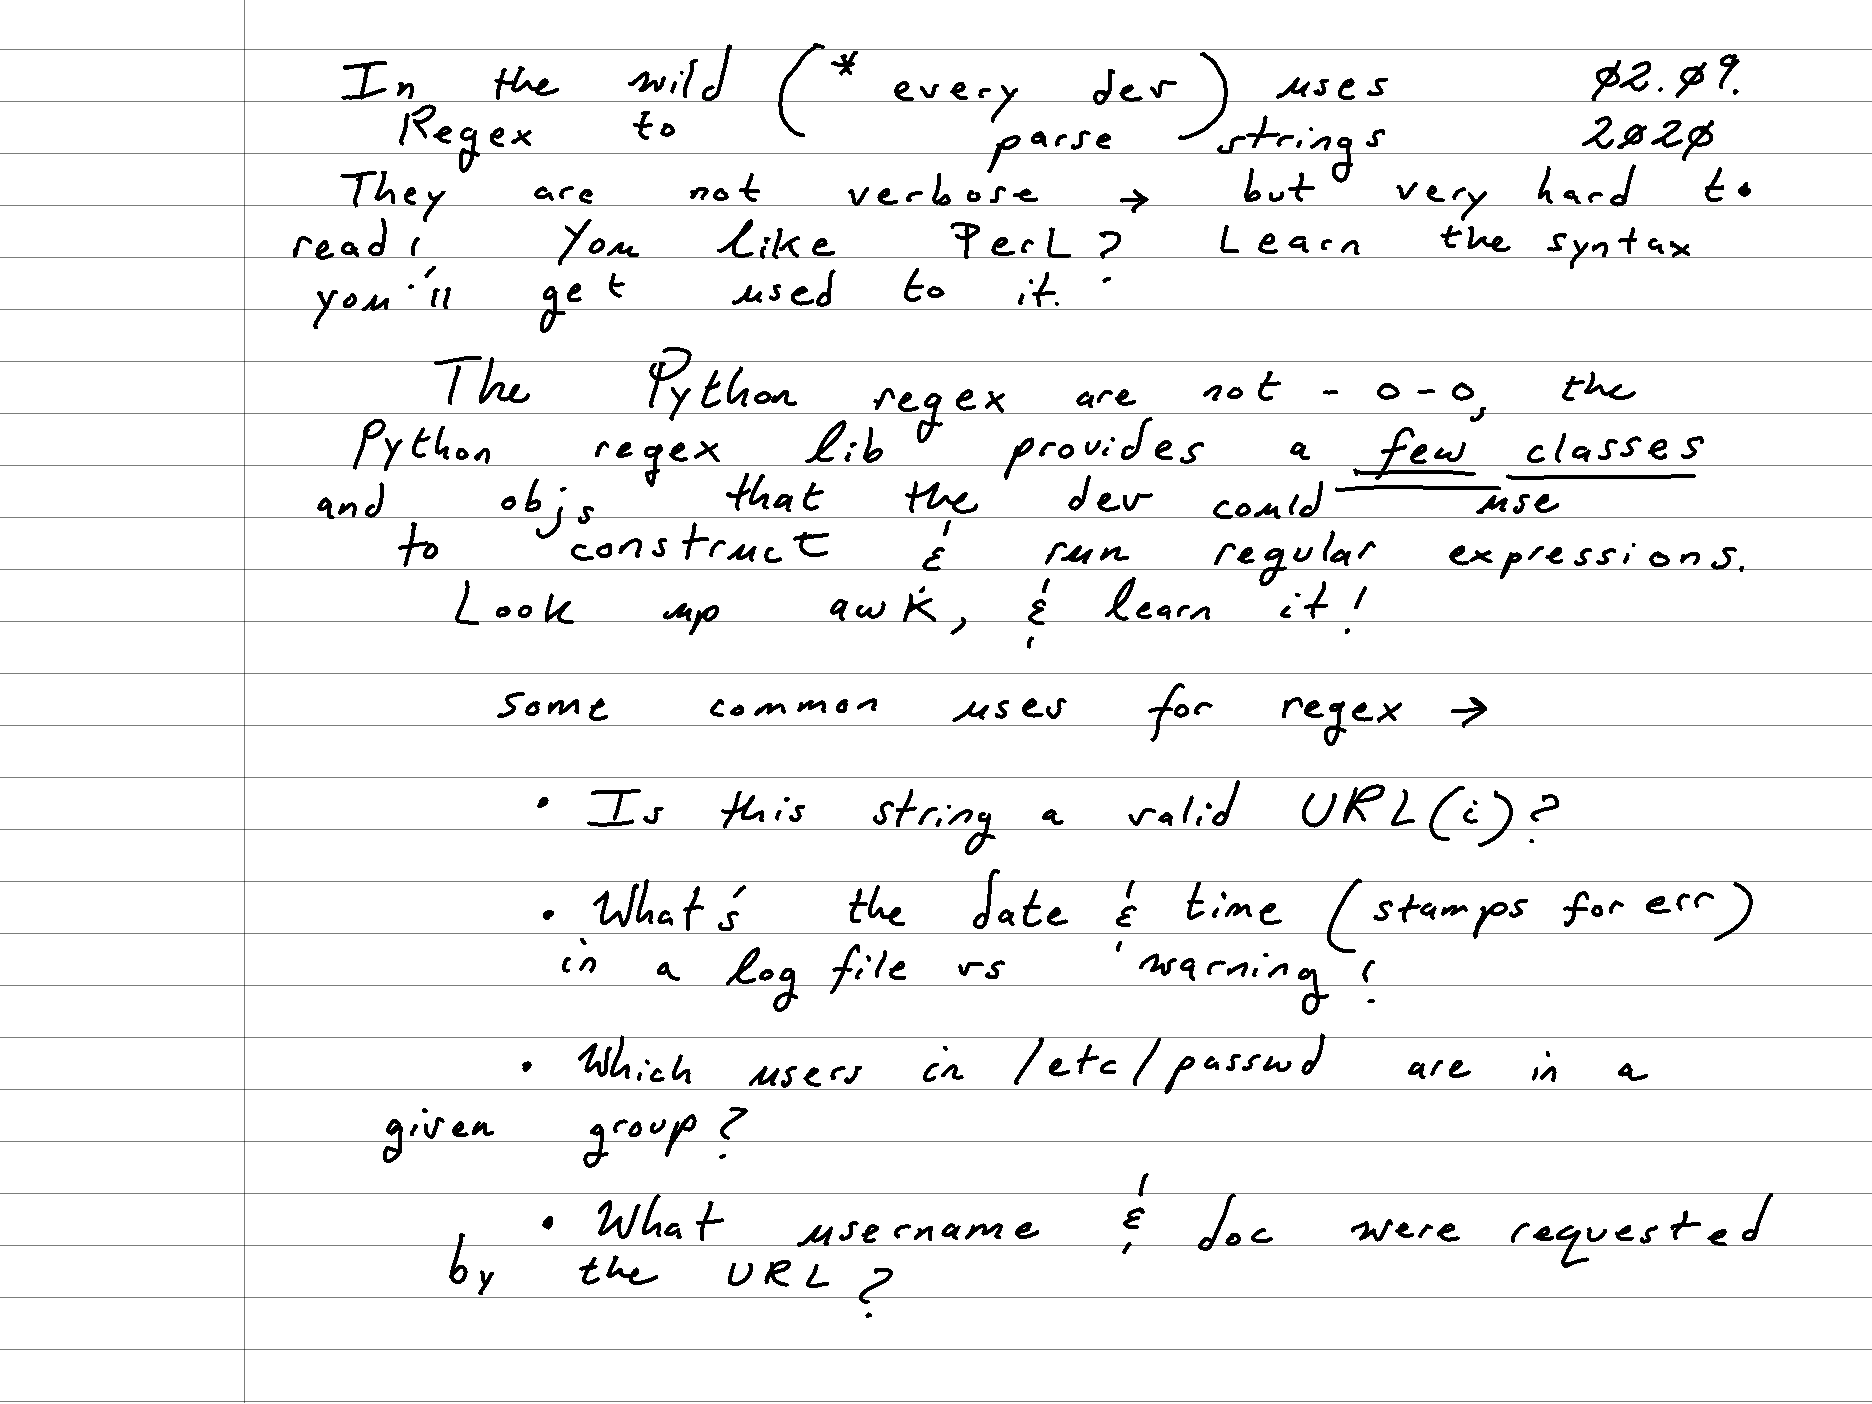 In the wild (* every dev) uses 02.09.
Regex to parse strings 2020
They are not verbose → but very hard to
read! You like Perl? Learn the syntax
you'll get used to it.
The Python regex are not -o-o, the
Python regex lib provides a few classes
and objs that the dev could use
to construct & run regular expressions.
Look up awk, & learn it!
some common uses for regex →
• Is this string a valid URL(i)?
• What's the date & time (stamps for err)
in a log file vs warning!
• Which users in /etc/passwd are in a
given group?
• What username & doc were requested
by the URL?